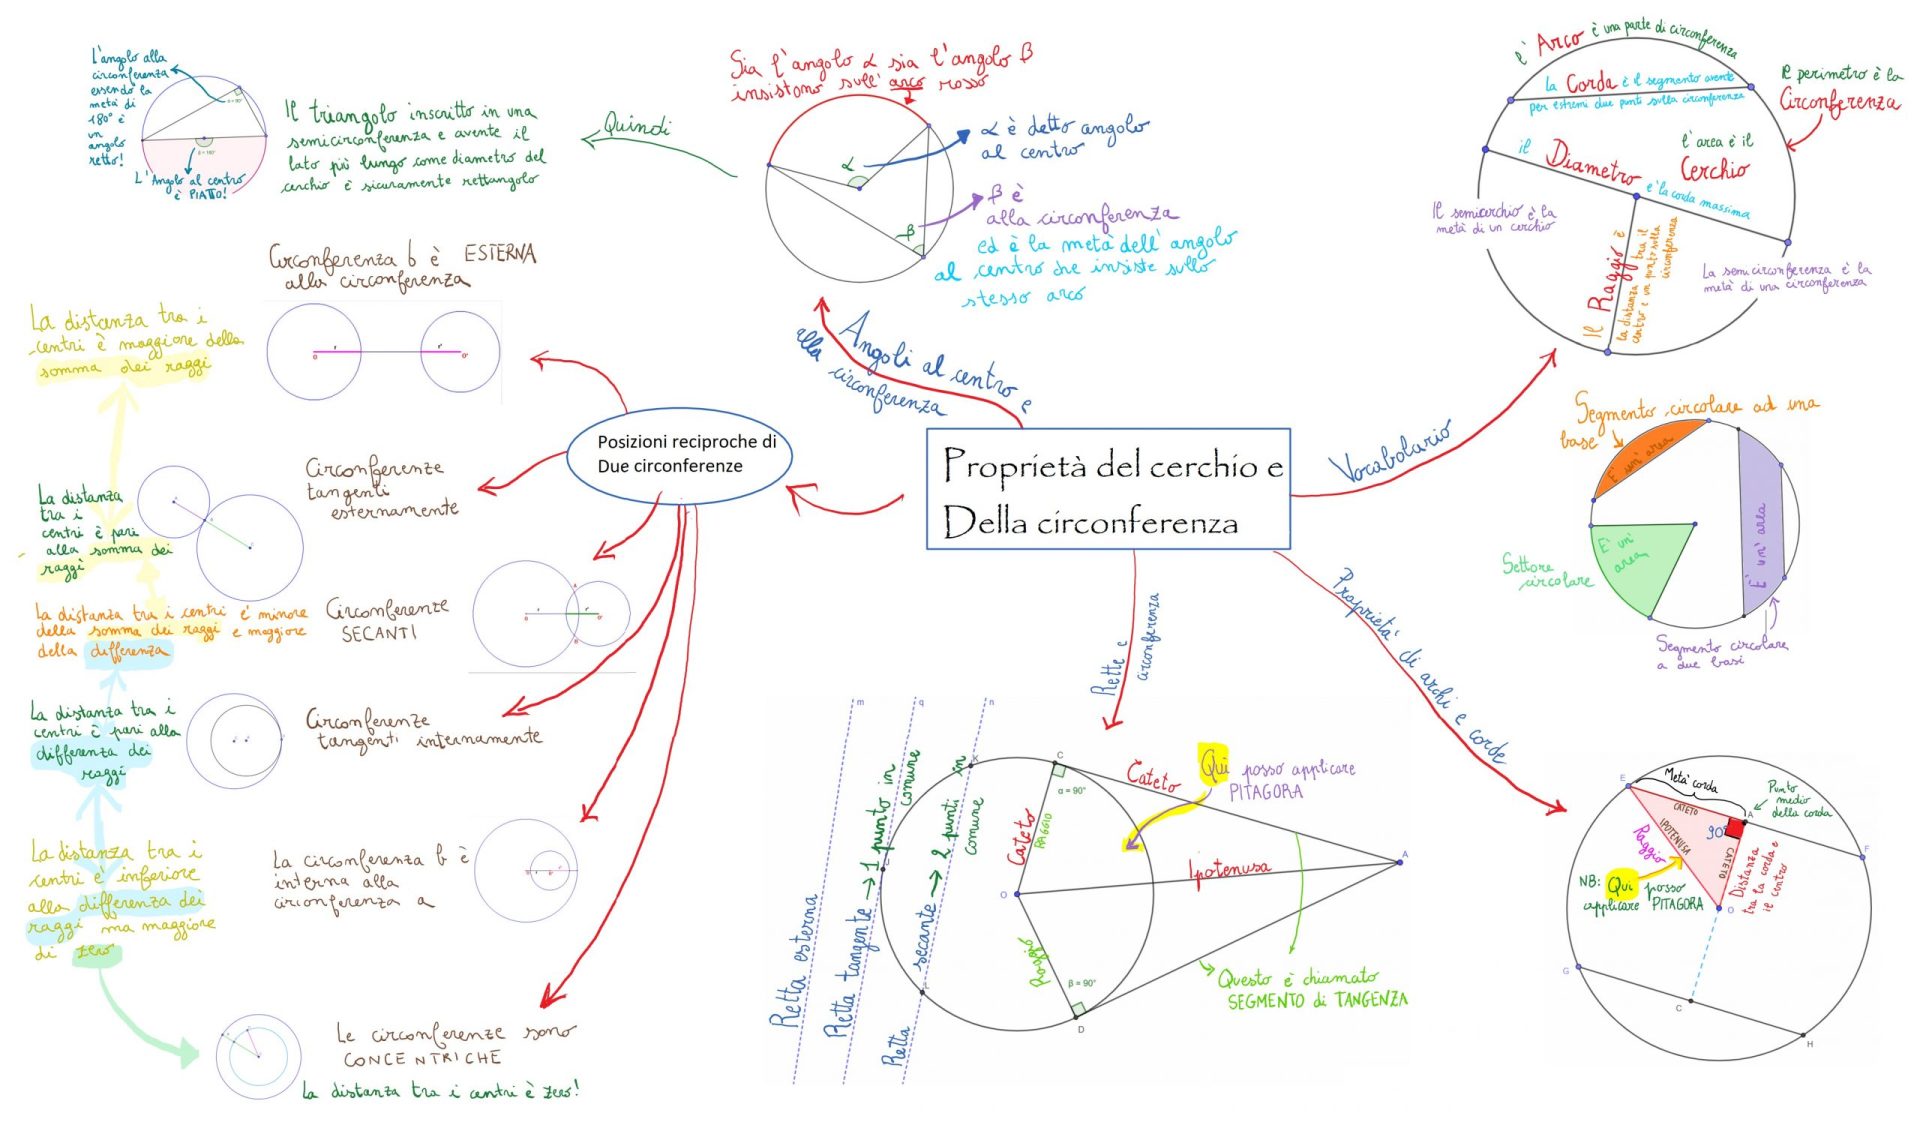 Proprietà del cerchio e
Della circonferenza
Angoli al centro e
alla circonferenza
Sia l'angolo α sia l'angolo β
insistono sull'arco rosso
α
β
α è detto angolo
al centro
β è
alla circonferenza
ed è la metà dell'angolo
al centro che insiste sullo
stesso arco
Quindi
Il triangolo inscritto in una
semicirconferenza e avente il
lato più lungo come diametro del
cerchio è sicuramente rettangolo
L'angolo alla
circonferenza
essendo la
metà di
180° è
un
angolo
retto!
α = 90°
β = 180°
L'Angolo al centro
è PIATTO!
Vocabolario
l'Arco è una parte di circonferenza
la Corda è il segmento avente
per estremi due punti sulla circonferenza
Il perimetro è la
Circonferenza
l'area è il
Cerchio
il Diametro è la corda massima
Il semicerchio è la
metà di un cerchio
Il Raggio è
la distanza tra il
centro e un punto sulla
circonferenza
La semicirconferenza è la
metà di una circonferenza
Segmento circolare ad una
base
E' un' area
E' un'
area
E' un' area
Settore
circolare
Segmento circolare
a due basi
Posizioni reciproche di
Due circonferenze
Circonferenza b è ESTERNA
alla circonferenza
La distanza tra i
centri è maggiore della
somma dei raggi
O r r' O'
Circonferenze
tangenti
esternamente
La distanza
tra i
centri è pari
alla somma dei
raggi
Circonferenze
SECANTI
La distanza tra i centri e' minore
della somma dei raggi e maggiore
della differenza
A
O r r' O'
B
Circonferenze
tangenti internamente
La distanza tra i
centri è pari alla
differenza dei
raggi
La circonferenza b è
interna alla
circonferenza a
La distanza tra i
centri è inferiore
alla differenza dei
raggi ma maggiore
di zero
Le circonferenze sono
CONCENTRICHE
La distanza tra i centri è zero!
Rette e
circonferenza
m
q
n
Retta esterna
Retta tangente → 1 punto in
comune
Retta secante → 2 punti in
comune
K
C
α = 90°
Cateto
Cateto
RAGGIO
Qui posso applicare
PITAGORA
Ipotenusa
A
O
Raggio
β = 90°
D
Questo è chiamato
SEGMENTO di TANGENZA
Proprieta' di archi e corde
E
Metà corda
CATETO
A
Punto
medio
della corda
90°
IPOTENUSA
Raggio
CATETO
Distanza
tra la corda e
il centro
F
NB: Qui posso
applicare PITAGORA
O
G
C
H